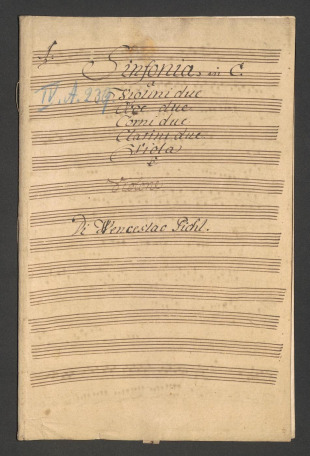 1.
Sinfonia, in C.
a
IV. A. 239
Violini due
Oboe due
Corni due
Clarini due
Viola
è
Violone
Di Wenceslao Pichl.